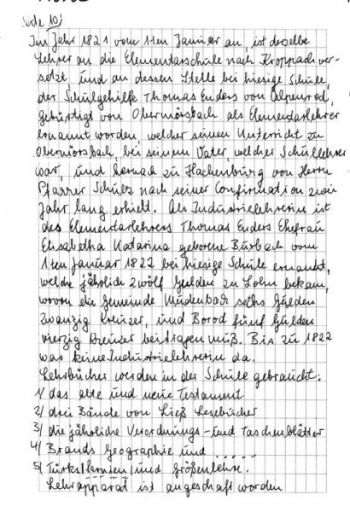 Seite 10)
Im Jahr 1821 vom 1ten Januar an, ist derselbe
Lehrer an die Elementarschule nach Kroppach ver-
setzt, und an dessen Stelle bei hiesige Schule
der Schulgehilfe Thomas Enders von Alpenrod,
gebürtigt von Obermörsbach als Elementarlehrer
ernannt worden, welcher seinen Unterricht zu
Obermörsbach bei seinem Vater, welcher Schullehrer
war, und darnach zu Hachenburg von Herrn
Pfarrer Schulz nach seiner Confirmation zwei
Jahr lang erhielt. Als Industrielehrerin ist
des Elementarlehrers Thomas Enders Ehefrau
Elisabetha Katarina geborene Burbach vom
1ten Januar 1822 bei hiesige Schule ernannt,
welche jährlich zwölf Gulden zu Lohn bekam,
wovon die Gemeinde Mudenbach sechs Gulden
zwanzig Kreuzer, und Borod fünf Gulden
vierzig Kreuzer beitragen muß. Bis zu 1822
was keine Industrielehrerin da.
Lehrbücher werden in der Schule gebraucht:
1/ das alte und neue Testament
2/ drei Bände von Ließ Lesebücher
3/ die jährliche Verordnungs- und Taschenblätter
4/ Brands Geographie und .....
5/ und Größenlehre.
Lehrapparat ist angeschaft worden